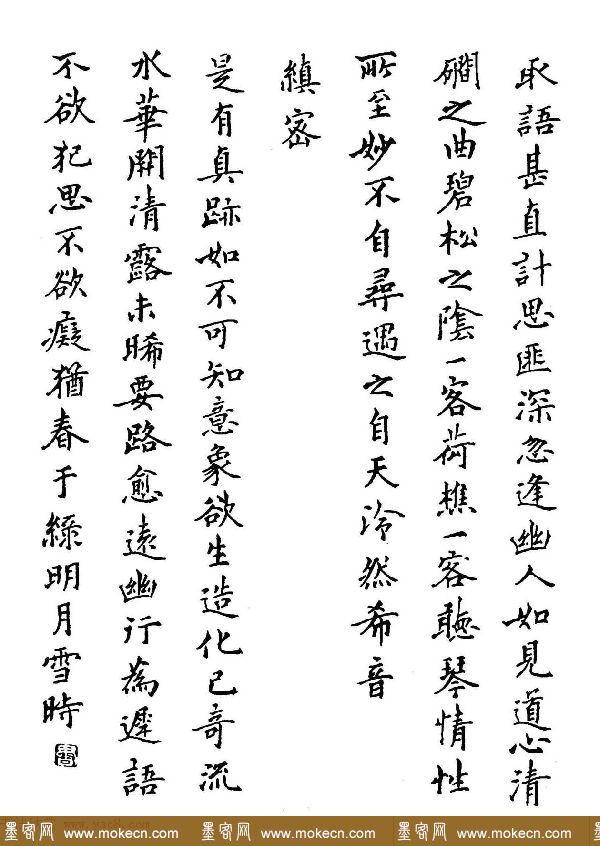 取語甚直計思匪深忽逢幽人如見道心清
磵之曲碧松之陰一客荷樵一客聽琴情性
所至妙不自尋遇之自天泠然希音
縝密
是有真跡如不可知意象欲生造化已奇流
水華開清露未晞要路愈遠幽行為遲語
不欲犯思不欲癡猶春于綠明月雪時
墨客网 www.mokecn.com 墨客网 www.mokecn.com 墨客网 www.mokecn.com